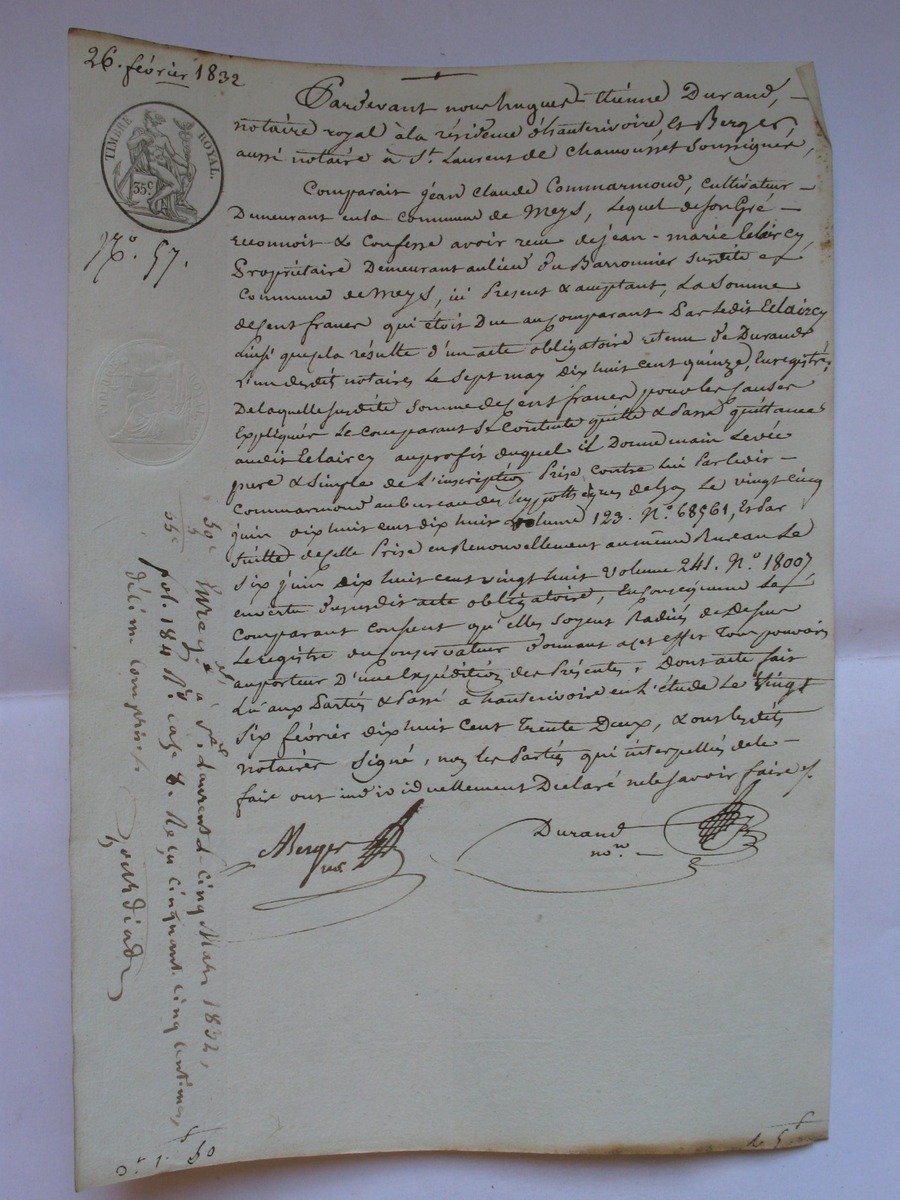 26. février 1832
TIMBRE ROYAL.
35c
N.o 57.
Pardevant nous hugues-étienne Durand,
notaire royal à la résidence d'hauterivoire, et Berger,
aussi notaire à St. Laurent de Chamousset Soussignés,
Comparait jéan Claude Commarmond, cultivateur
Demeurant en la Commune de Meys, lequel de son Gré
reconnoit & Confesse avoir reçu de jean-marie Eclaircy,
Propriétaire Demeurant au lieu Du Barronnier Susdite
Commune de Meys, ici Présent & acceptant, La Somme
de Cent francs qui étoit Due au Comparant Par ledit Eclaircy
ainsi que cela résulte d'un acte obligatoire retenu de Durand
L'un desdits notaires le Sept may dix huit cent quinze, Enregistré,
De laquelle Susdite Somme de Cent francs pour les Causes
Expliquées Le Comparant Se Contente quitte & Passe quittance
audit Eclaircy au profit duquel il Donne main Levée
pure & Simple de L'inscription Prise contre lui Par ledit
Commarmond au bureau des hypothèques de Lyon Le vingt cinq
juin dix huit cent dix huit volume 123. N.o 68561, Et Par
Suitte de Celle Prise en Renouvellement au même Bureau Le
Six juin Dix huit cent vingt huit Volume 241. N.o 18007,
en vertu du susdit acte obligatoire, En Conséquence Le
Comparant Consent qu'elles Soyent Radiés de Dessus
Le registre du Conservateur Donnant à cet effet Tout pouvoir
au porteur D'une Expédition des Présentes, Dont acte fait
Lu aux Parties & Passé à hauterivoire en L'étude Le Vingt
Six février dix huit Cent Trente Deux, & ont lesdits
notaires Signé, non les Parties qui interpellés de le
faire ont individuellement Déclaré ne le Savoir faire
Berger
nre
Durand
no.re
50c
5
55c
Enregé. à St. Laurent le cinq Mars 1832,
fol. 184 R.o case 8. Reçu cinquante cinq centimes,
décime compris